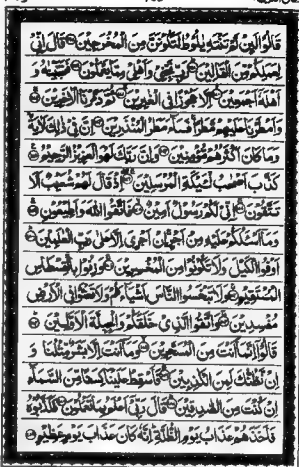 قَالُوا لَئِن لَّمْ تَنتَهِ يَا لُوطُ لَتَكُونَنَّ مِنَ الْمُخْرَجِينَ قَالَ إِنِّي
لِعَمَلِكُم مِّنَ الْقَالِينَ رَبِّ نَجِّنِي وَأَهْلِي مِمَّا يَعْمَلُونَ فَنَجَّيْنَاهُ وَ
أَهْلَهُ أَجْمَعِينَ إِلَّا عَجُوزًا فِي الْغَابِرِينَ ثُمَّ دَمَّرْنَا الْآخَرِينَ
وَأَمْطَرْنَا عَلَيْهِم مَّطَرًا فَسَاءَ مَطَرُ الْمُنذَرِينَ إِنَّ فِي ذَٰلِكَ لَآيَةً
وَمَا كَانَ أَكْثَرُهُم مُّؤْمِنِينَ وَإِنَّ رَبَّكَ لَهُوَ الْعَزِيزُ الرَّحِيمُ
كَذَّبَ أَصْحَابُ لْـَٔيْكَةِ الْمُرْسَلِينَ إِذْ قَالَ لَهُمْ شُعَيْبٌ أَلَا
تَتَّقُونَ إِنِّي لَكُمْ رَسُولٌ أَمِينٌ فَاتَّقُوا اللَّهَ وَأَطِيعُونِ
وَمَا أَسْأَلُكُمْ عَلَيْهِ مِنْ أَجْرٍ إِنْ أَجْرِيَ إِلَّا عَلَىٰ رَبِّ الْعَالَمِينَ
أَوْفُوا الْكَيْلَ وَلَا تَكُونُوا مِنَ الْمُخْسِرِينَ وَزِنُوا بِالْقِسْطَاسِ
الْمُسْتَقِيمِ وَلَا تَبْخَسُوا النَّاسَ أَشْيَاءَهُمْ وَلَا تَعْثَوْا فِي الْأَرْضِ
مُفْسِدِينَ وَاتَّقُوا الَّذِي خَلَقَكُمْ وَالْجِبِلَّةَ الْأَوَّلِينَ
قَالُوا إِنَّمَا أَنتَ مِنَ الْمُسَحَّرِينَ وَمَا أَنتَ إِلَّا بَشَرٌ مِّثْلُنَا وَ
إِن نَّظُنُّكَ لَمِنَ الْكَاذِبِينَ فَأَسْقِطْ عَلَيْنَا كِسَفًا مِّنَ السَّمَاءِ
إِن كُنتَ مِنَ الصَّادِقِينَ قَالَ رَبِّي أَعْلَمُ بِمَا تَعْمَلُونَ فَكَذَّبُوهُ
فَأَخَذَهُمْ عَذَابُ يَوْمِ الظُّلَّةِ إِنَّهُ كَانَ عَذَابَ يَوْمٍ عَظِيمٍ